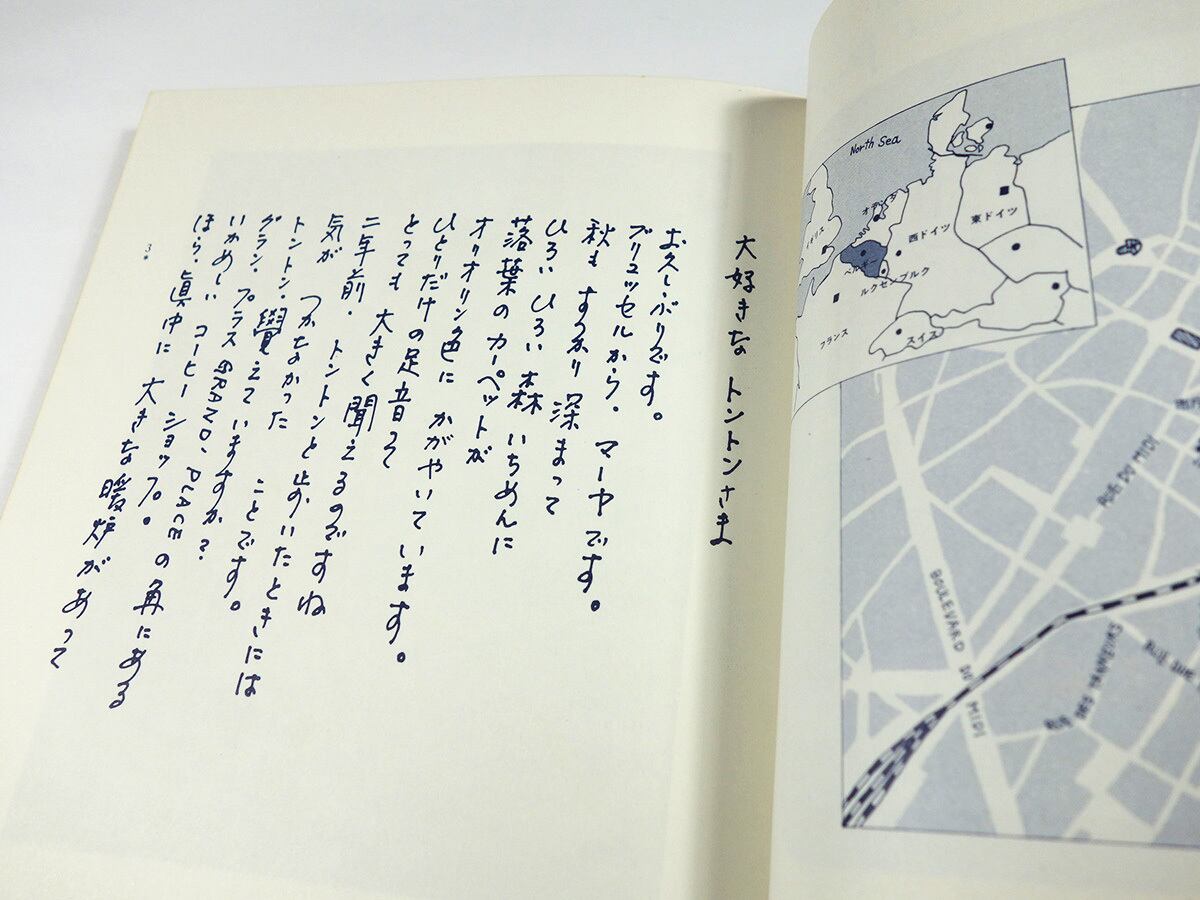 大好きな トントンさま
お久しぶりです。
ブリュッセルから、マーヤです。
秋も すっかり 深まって
ひろい ひろい 森 いちめんに
落葉の カーペットが
オリオリン色に かがやいています。
ひとりだけ の 足音って
とっても 大きく 聞えるのですね
二年前、トントンと 歩いたときには
気が つかなかった ことです。
トントン・覺えていますか?
グラン・プラス GRAND・PLACE の 角にある
いかめしい コーヒー ショップ。
ほら、真中に 大きな 暖炉が あって
3
North Sea
イギリス
オランダ
ベルギー
ルクセンブルク
西ドイツ
東ドイツ
フランス
スイス
RUE DU MIDI
BOULEVARD DU MIDI
RUE DES TANNEURS